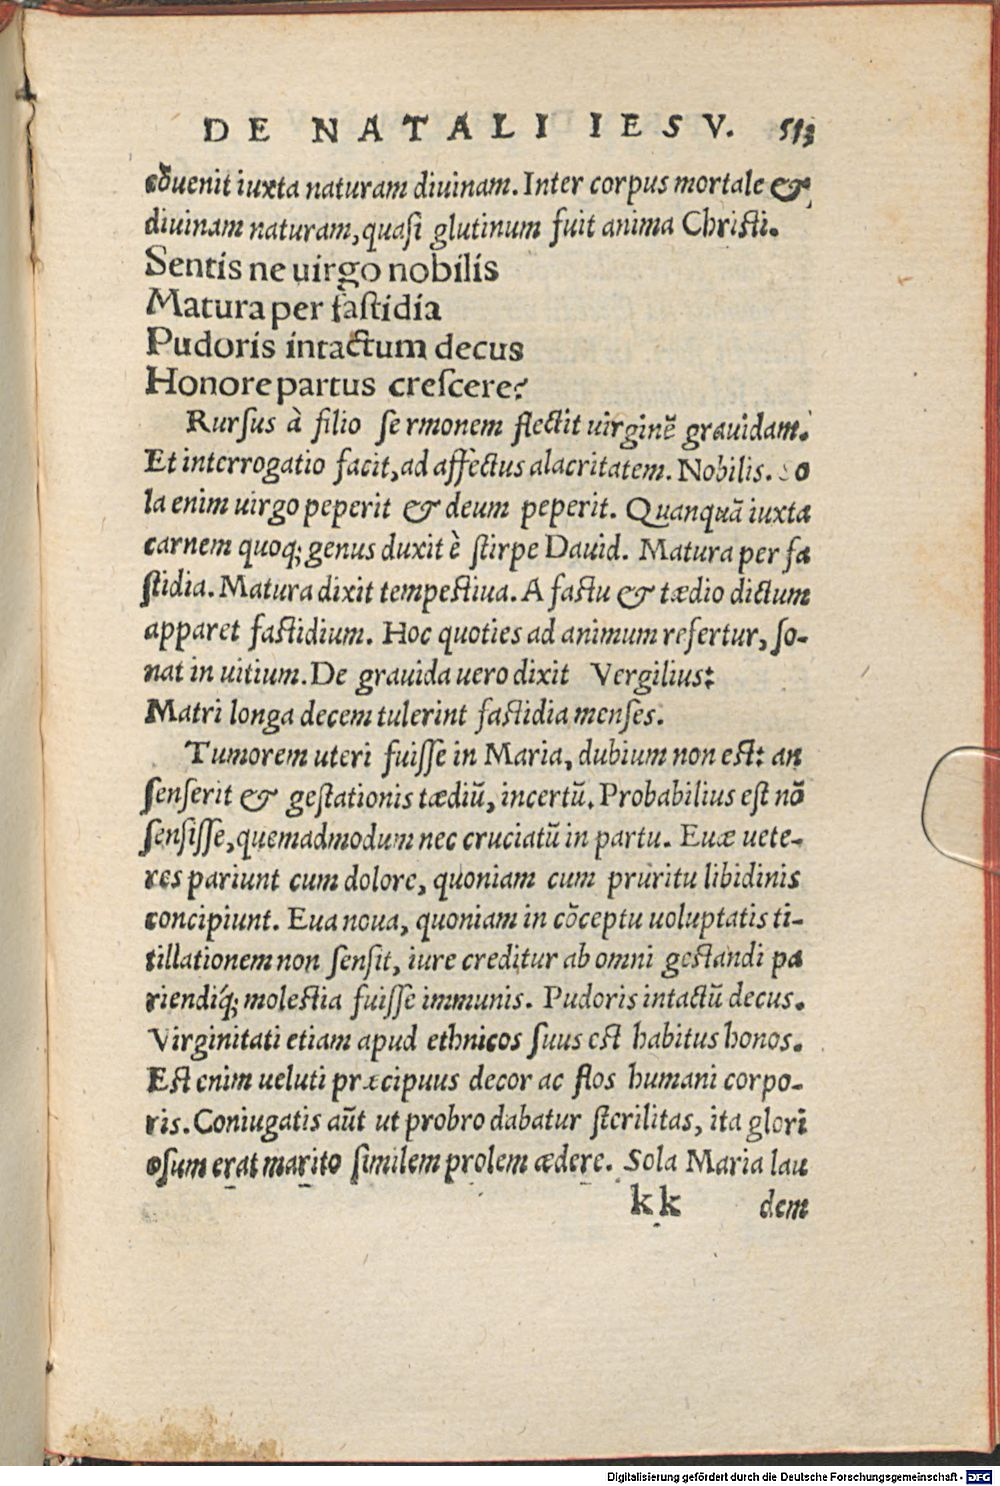 DE NATALI IESV. 513
cõuenit iuxta naturam diuinam. Inter corpus mortale &
diuinam naturam, quasi glutinum fuit anima Christi.
Sentis ne uirgo nobilis
Matura per fastidia
Pudoris intactum decus
Honore partus crescere?
Rursus à filio sermonem flectit uirginẽ grauidam.
Et interrogatio facit, ad affectus alacritatem. Nobilis. So
la enim uirgo peperit & deum peperit. Quanquã iuxta
carnem quoq; genus duxit è stirpe Dauid. Matura per fa
stidia. Matura dixit tempestiua. A fastu & tædio dictum
apparet fastidium. Hoc quoties ad animum refertur, so-
nat in uitium. De grauida uero dixit Vergilius:
Matri longa decem tulerint fastidia menses.
Tumorem uteri fuisse in Maria, dubium non est: an
senserit & gestationis tædiũ, incertũ. Probabilius est nõ
sensisse, quemadmodum nec cruciatũ in partu. Euæ uete-
res pariunt cum dolore, quoniam cum pruritu libidinis
concipiunt. Eua noua, quoniam in cõceptu uoluptatis ti-
tillationem non sensit, iure creditur ab omni gestandi pa
riendiq́; molestia fuisse immunis. Pudoris intactũ decus.
Virginitati etiam apud ethnicos suus est habitus honos.
Est enim ueluti præcipuus decor ac flos humani corpo-
ris. Coniugatis aũt ut probro dabatur sterilitas, ita glori
osum erat marito similem prolem ædere. Sola Maria lau
kk dem
Digitalisierung gefördert durch die Deutsche Forschungsgemeinschaft - DFG